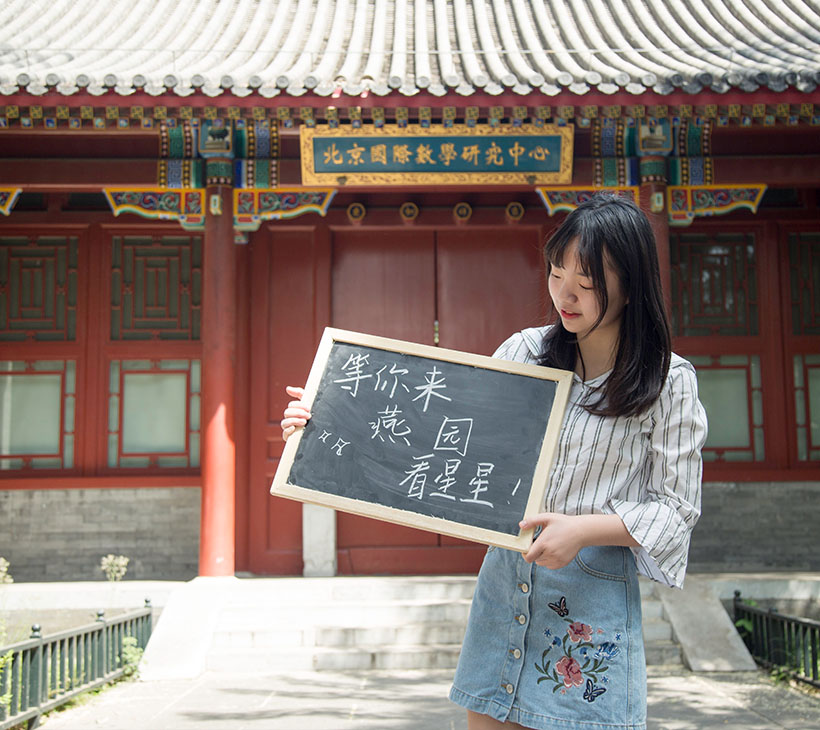 北京國際數學研究中心
等你来
燕园
看星星!